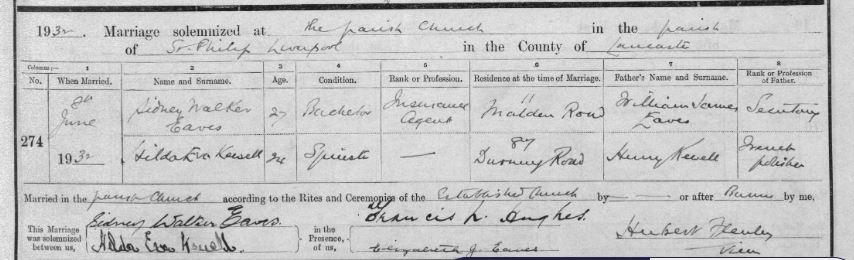 1932. Marriage solemnized at the parish Church in the parish
of St. Philip Liverpool in the County of Lancaster
Columns:— 1 2 3 4 5 6 7 8
No. When Married. Name and Surname. Age. Condition. Rank or Profession. Residence at the time of Marriage. Father's Name and Surname. Rank or Profession of Father.
274
8th June 1932
Sidney Walker Eaves 27 Bachelor Insurance Agent 11 Malden Road William James Eaves Secretary
Hilda Eva Kewell 24 Spinster — 87 Durning Road Henry Kewell French polisher
Married in the parish Church according to the Rites and Ceremonies of the Established Church by — or after Banns by me,
This Marriage was solemnized between us,
Sidney Walker Eaves.
Hilda Eva Kewell.
in the Presence of us,
Francis W. Hughes.
Elizabeth J. Eaves
Hubert
Vicar